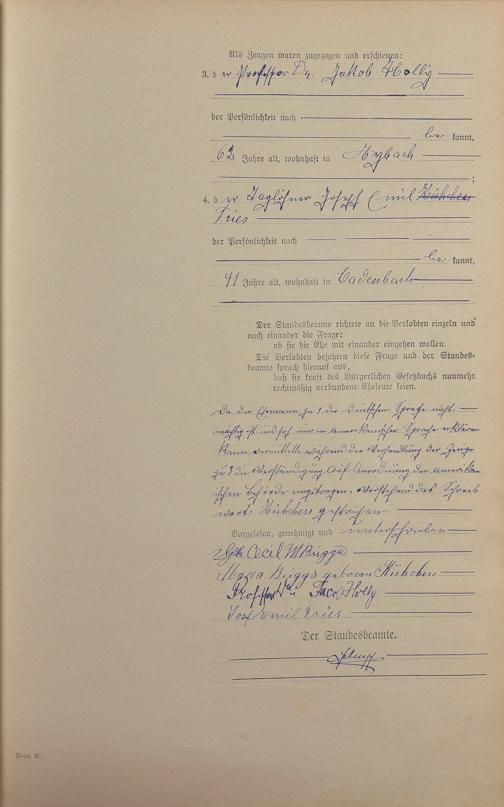 Als Zeugen waren zugezogen und erschienen:
3. d er Professor Dr. Jakob Holly
der Persönlichkeit nach
be kannt,
62 Jahre alt, wohnhaft in Arzbach
;
4. d er Taglöhner Joseph Emil Kühchen
Fries
der Persönlichkeit nach
be kannt,
41 Jahre alt, wohnhaft in Cadenbach
Der Standesbeamte richtete an die Verlobten einzeln und
nach einander die Frage:
ob sie die Ehe mit einander eingehen wollen.
Die Verlobten bejahten diese Frage und der Standes-
beamte sprach hierauf aus,
daß sie kraft des Bürgerlichen Gesetzbuchs nunmehr
rechtmäßig verbundene Eheleute seien.
Da der Ehemann zu 1 der deutschen Sprache nicht
mächtig ist und sich nur in amerikanischer Sprache erklären
kann, vermittelte während der Verhandlung der Zeuge
zu 3 die Verständigung. Auf Anordnung der amerika-
nischen Behörde eingetragen. Vorstehend das Schreib-
wort Kühchen gestrichen
Vorgelesen, genehmigt und unterschrieben
Cecil M Briggs
Maria Briggs geborene Kühchen
Professor Dr Jacob Holly
Jos. Emil Fries
Der Standesbeamte.
Form. B.